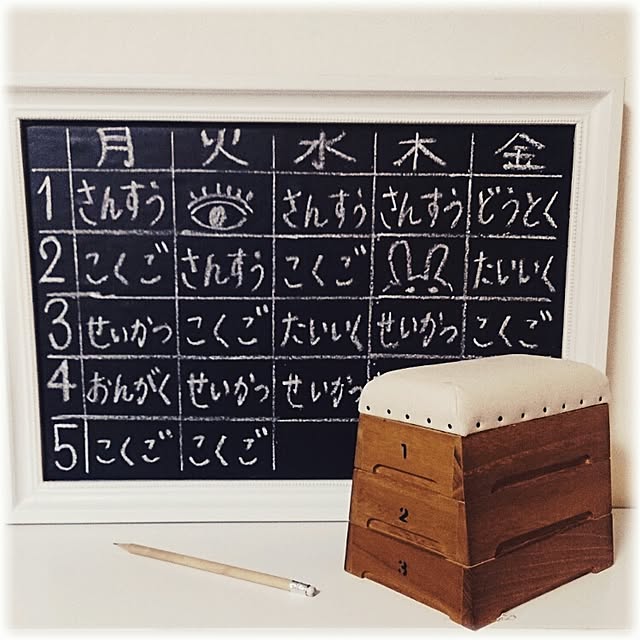 月 火 水 木 金
1 さんすう さんすう さんすう どうとく
2 こくご さんすう こくご たいいく
3 せいかつ こくご たいいく せいかつ こくご
4 おんがく せいかつ せいかつ
5 こくご こくご
1
2
3